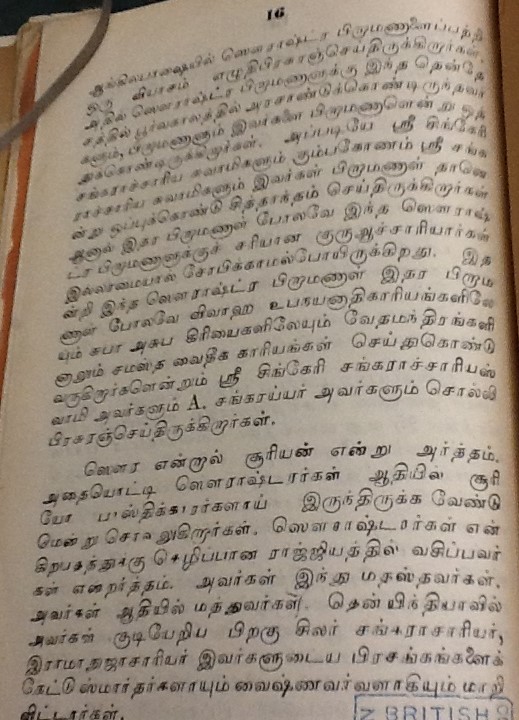 16
ஆங்கிலபாஷையில் ஸௌராஷ்ட்ர பிரமணாளைப்பற்றி
ஒரு வியாசம் எழுதிபிரசுரஞ்செய்திருக்கிறார்கள்.
அதில் ஸௌராஷ்ட்ர பிரமணாளுக்கு இந்த தென்தே
சத்தில் பூர்வகாலத்தில் அரசாண்டுக்கொண்டிருந்தவர்
களும், பிரமணாளும் இவர்களை பிரமணாளென்று ஒத்
துக்கொண்டிருக்கிறார்கள். அப்படியே ஸ்ரீ சிங்கேரி
சங்கராச்சாரிய சுவாமிகளும் கும்பகோணம் ஸ்ரீ சங்க
ராச்சாரிய சுவாமிகளும் இவர்கள் பிரமணாள் தானெ
ன்று ஒப்புக்கொண்டு சித்தாந்தம் செய்திருக்கிறார்கள்
ஆனால் இதர பிரமணாள் போலவே இந்த ஸௌராஷ்
ட்ர பிரமணாளுக்குச் சரியான குருஆச்சாரியார்கள்
இல்லாமையால் சோபிக்காமல்போயிருக்கிறது. இத
ன்றி இந்த ஸௌராஷ்ட்ர பிரமணாள் இதர பிரம
ணாள் போலவே விவாஹ உபநயனாதிகாரியங்களிலே
யும் சுபா அசுப கிரியைகளிலேயும் வேதமந்திரங்களி
னாலும் சமஸ்த வைதீக காரியங்கள் செய்துகொண்டு
வருகிறார்களென்றும் ஸ்ரீ சிங்கேரி சங்கராச்சாரியஸ்
வாமி அவர்களும் A. சங்கரய்யர் அவர்களும் சொல்லி
பிரசுரஞ்செய்திருக்கிறார்கள்.
ஸௌர என்றால் சூரியன் என்று அர்த்தம்.
அதையொட்டி ஸௌராஷ்டரர்கள் ஆதியில் சூரி
யோ பாஸ்திக்காரர்களாய் இருந்திருக்க வேண்டு
மென்று சொல்லுகிறார்கள். ஸௌராஷ்டரர்கள் என்
கிறபதத்துக்கு செழிப்பான ராஜ்ஜியத்தில் வசிப்பவர்
கள் என்றர்த்தம். அவர்கள் இந்து மதஸ்தவர்கள்.
அவர்கள் ஆதியில் மத்துவர்கள். தென் யிந்தியாவில்
அவர்கள் குடியேறிய பிறகு சிலர் சங்கராசாரியர்,
இராமாநுஜாசாரியர் இவர்களுடைய பிரசங்கங்களைக்
கேட்டு ஸ்மார்தர்களாயும் வைஷ்ணவர்வளாகியும் மாறி
விட்டார்கள்.
BRITISH